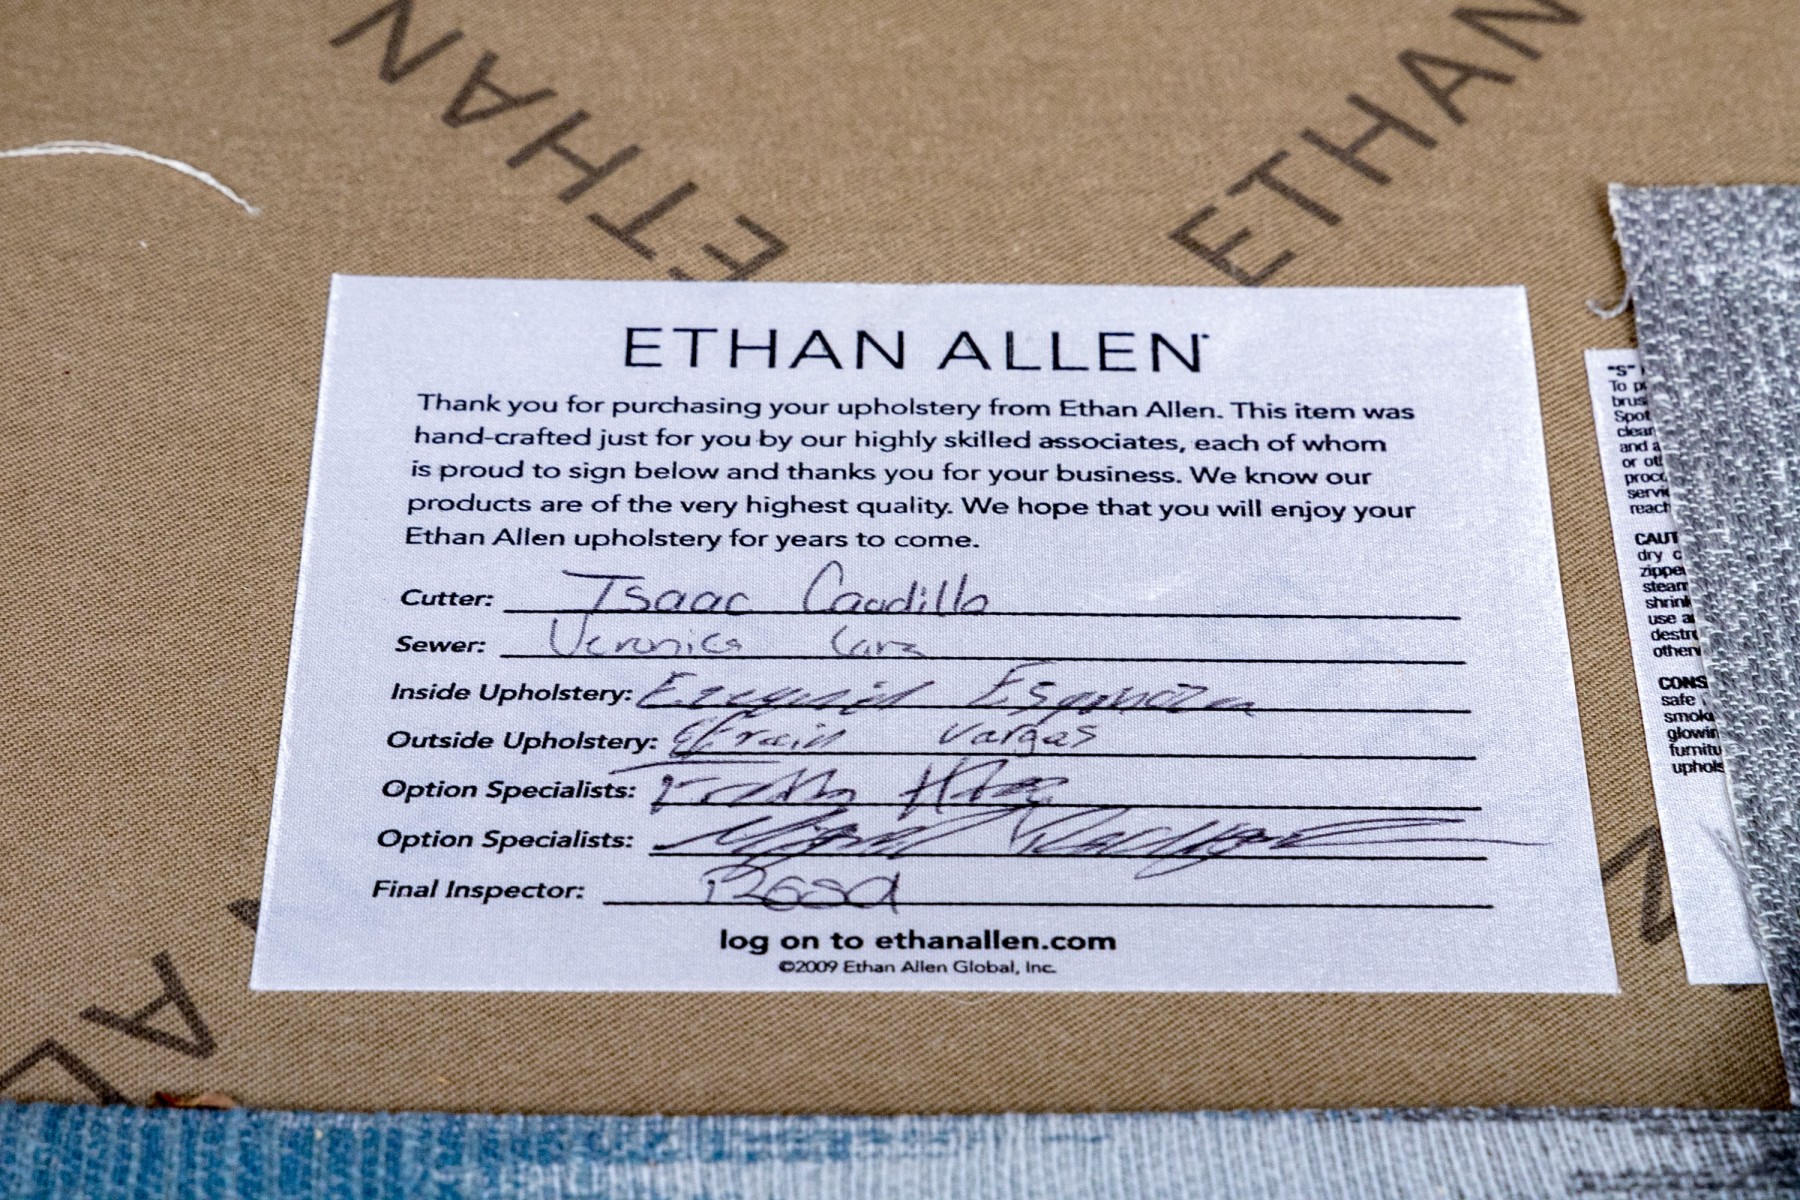 ETHAN
ETHAN
ETHAN ALLEN
Thank you for purchasing your upholstery from Ethan Allen. This item was
hand-crafted just for you by our highly skilled associates, each of whom
is proud to sign below and thanks you for your business. We know our
products are of the very highest quality. We hope that you will enjoy your
Ethan Allen upholstery for years to come.
Cutter: Isaac Caudillo
Sewer: Veronica
Inside Upholstery: Ezequiel Espinoza
Outside Upholstery: Efrain Vargas
Option Specialists:
Option Specialists: Miguel
Final Inspector: Rosa
log on to ethanallen.com
©2009 Ethan Allen Global, Inc.
"S"
To
Spot
and
CAUT
dry c
use
CONS
safe